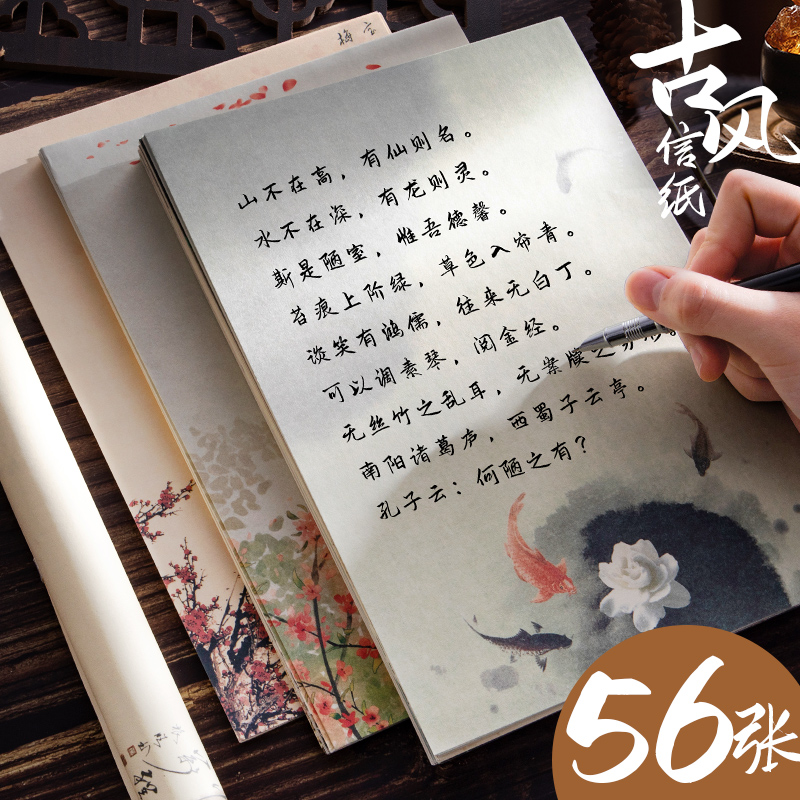 古风
信纸
山不在高，有仙则名。
水不在深，有龙则灵。
斯是陋室，惟吾德馨。
苔痕上阶绿，草色入帘青。
谈笑有鸿儒，往来无白丁。
可以调素琴，阅金经。
无丝竹之乱耳，无案牍之
南阳诸葛庐，西蜀子云亭。
孔子云：何陋之有？
56张